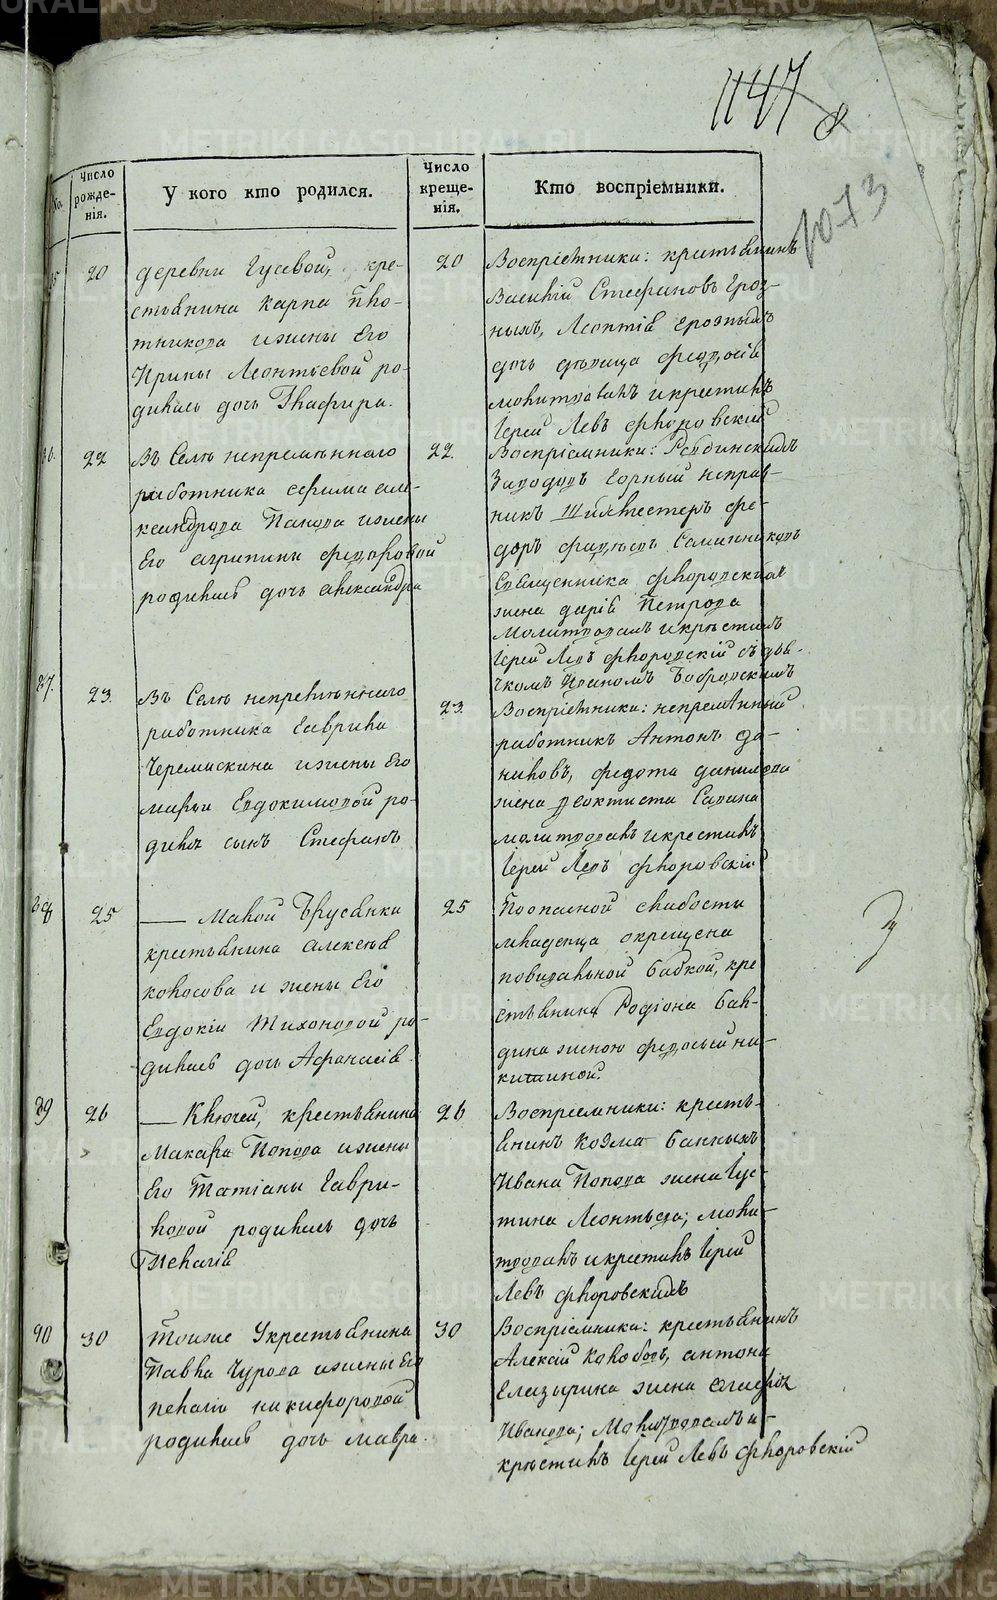 1147
1073
№.
Число рожденія.
У кого кто родился.
Число крещенія.
Кто воспріемники.
20
деревни Гусевой, кре-
стьянина Карпа Пло-
тникова и жены Его
Ирины Леонтьевой ро-
дилась дочь Глафира.
20
Воспріемники: крестьянинъ
Василій Стефановъ Гроз-
ныхъ, Леонтія Грозныхъ
дочь дѣвица Федосія
молитвовалъ и крестилъ
Іерей Левъ Флоровскій
22
Въ Селѣ непремѣннаго
работника Ефима Але-
ксандрова Панова и жены
Его Агрипины Федоровой
родилась дочь Александра
22.
Воспріемники:
Заводовъ Горный исправ-
никъ Шихтмейстеръ Фе-
доръ
Священника Флоровскаго
жена Дарія Петрова
Молитвовалъ и крестилъ
Іерей Левъ Флоровскій съ дья-
чкомъ Иваномъ Бобровскимъ
87.
23.
Въ Селѣ непремѣннаго
работника Гаврила
Черемискина и жены Его
Марьи Евдокимовой ро-
дился сынъ Стефанъ
23.
Воспріемники: непремѣнный
работникъ Антонъ Да-
ниловъ, Федота Данилова
жена Феоктиста Савина
молитвовалъ и крестилъ
Іерей Левъ Флоровскій
25
— Малой Брусянки
крестьянина Алексея
Колосова и жены Его
Евдокіи Тихоновой ро-
дилась дочь Афанасія
25
По опасной слабости
младенца окрещена
повивальной бабкой, кре
стьянина Родіона Бал-
дина женою Федосьей Ни-
китиной.
89
26
— Ключей, крестьянина
Макара Попова и жены
Его Татіаны Гаври-
ловой родилась дочь
Пелагія
26
Воспріемники: кресть-
янинъ Козма Банныхъ
Ивана Попова жена Іус-
тина Леонтьева; моли-
твовалъ и крестилъ Іерей
Левъ Флоровскій
90
30
Тоиже У крестьянина
Павла Чурова и жены Его
Пелагіи Никифоровой
родилась дочь Мавра.
30
Воспріемники: крестьянинъ
Алексій Колобовъ, Антона
Глазырина жена
Иванова; Молитвовалъ и
крѣстилъ Іерей Левъ Флоровскій
METRIKI.GASO-URAL.RU